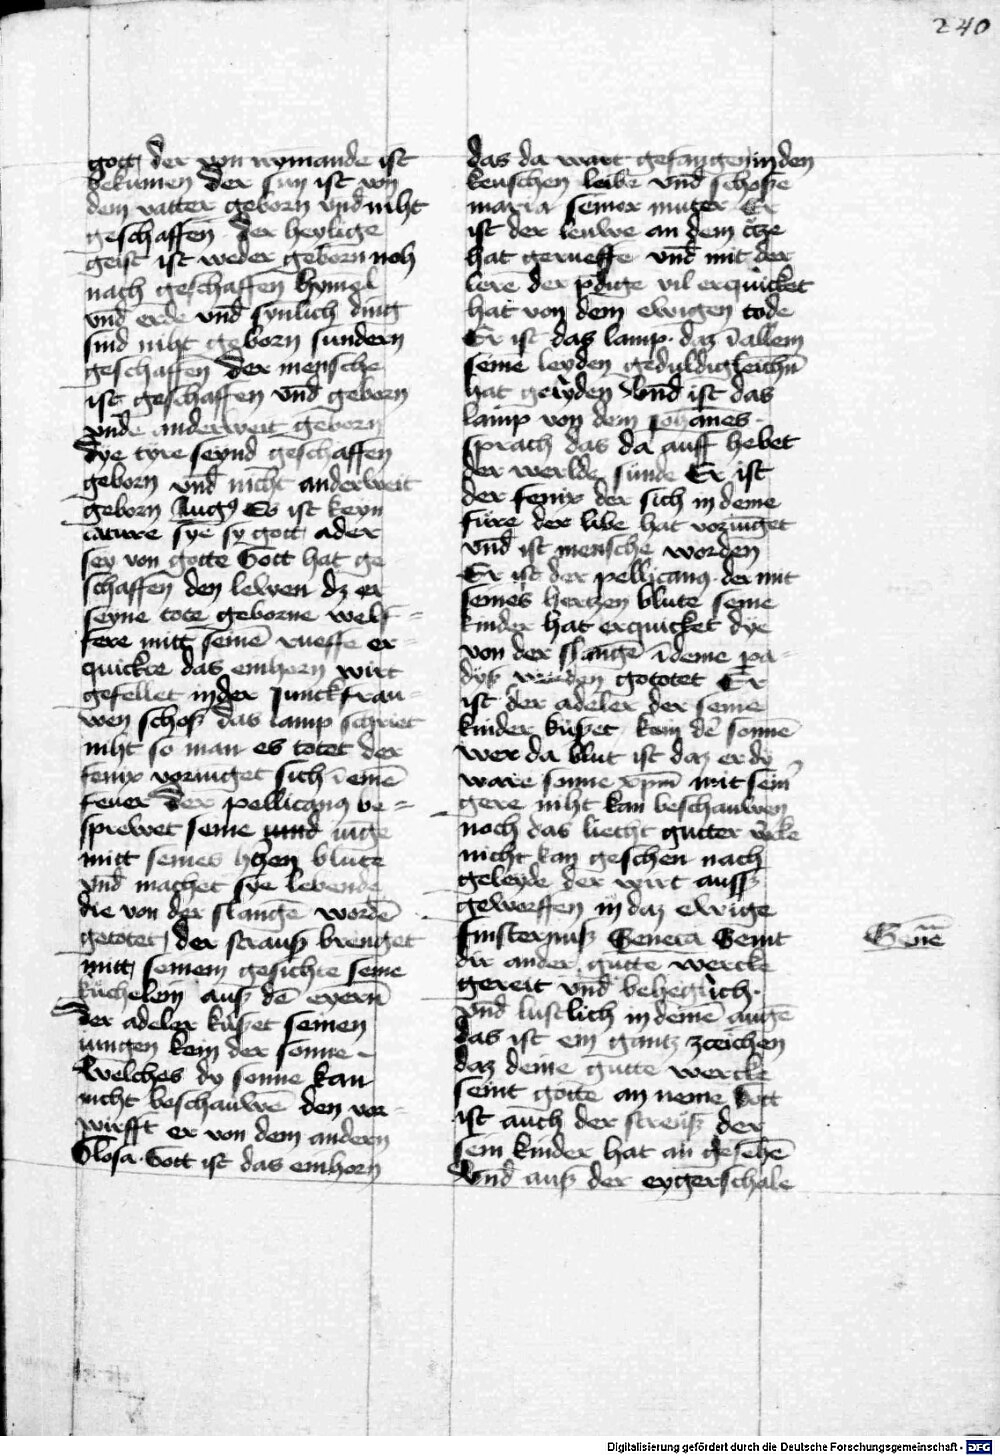 240
gott der von nymande ist
bekumen der sun ist von
dem vatter geborn vnd niht
geschaffen der heylige
geist ist weder geborn noh
nach geschaffen hymel
vnd erde vnd synlich ding
sind niht geborn sundern
geschaffen der mensche
ist geschaffen vnd geborn
vnde anderweit geborn
Dye tyre seynd geschaffen
geborn vnd nicht anderweit
geborn Augꝯ Es ist keyn
sye sy gott ader
sey von gotte Gott hat ge
schaffen den lewen dz er
seyne tote geborne welf=
fere mitt seinē rueffe er=
quicke das einhorn wirt
gefellet in der Junckfrau=
wen schoß das lamp schriet
niht so man es totet der
fenix voriunget sich ī einē
feuer der pellicanꝯ be=
sprewet seine iūge
mitt seines blute
vnd machet sye lebende
die von der slangē wordē
getotet der strauß brenget
mitt seinem gesichte seine
kuchelein auß dē eyern
Der adeler kußet seinen
iungen kein der sonne
Welches dy sonne kan
nicht beschauwē den vor=
wirfft er von dem andern
Glosa Gott ist das einhorn
das da wart gefangen in den
keuschen leibe vnd schoße
maria seiner muter Er
ist der leuwe an dem
hat gerueffe vnd mit der
lere der pdige vil erquicket
hat von dem ewigen tode
Er ist das lamp daz ī allem
seinē leyden geduldigleichn
hat Vnd ist das
lamp von dem Johanes
sprach das da auff hebet
der werlde sunde Er ist
der fenix der sich in deme
fure der libe hat voriunget
vnd ist mensche worden
Er ist der pellicanꝯ der mit
seines hertzen blute seine
kinder hat erquicket dye
von der slangē ī deme pa=
dyß wurden gototet Er
ist der adeler der seine
kinder kußet kein dē sonnē
wer da blint ist daz er dy
ware sonne xpm mit sein
gere niht kan beschauwen
noch das liecht gutter
nicht kan gesehen nach
geleyde der wirt auss
geworffen in daz ewige
finsternuß Genera Seint
dir ander gutte wercke
gereit vnd behegrlich
vnd lustlich in deinē augē
das ist ein gantz zceichen
daz deine gutte wercke
seint gotte an neme Gott
ist auch der streuß der
sein kinder hat an gesehē
Vnd auß der eygerschale
Digitalisierung gefördert durch die Deutsche Forschungsgemeinschaft - DFG